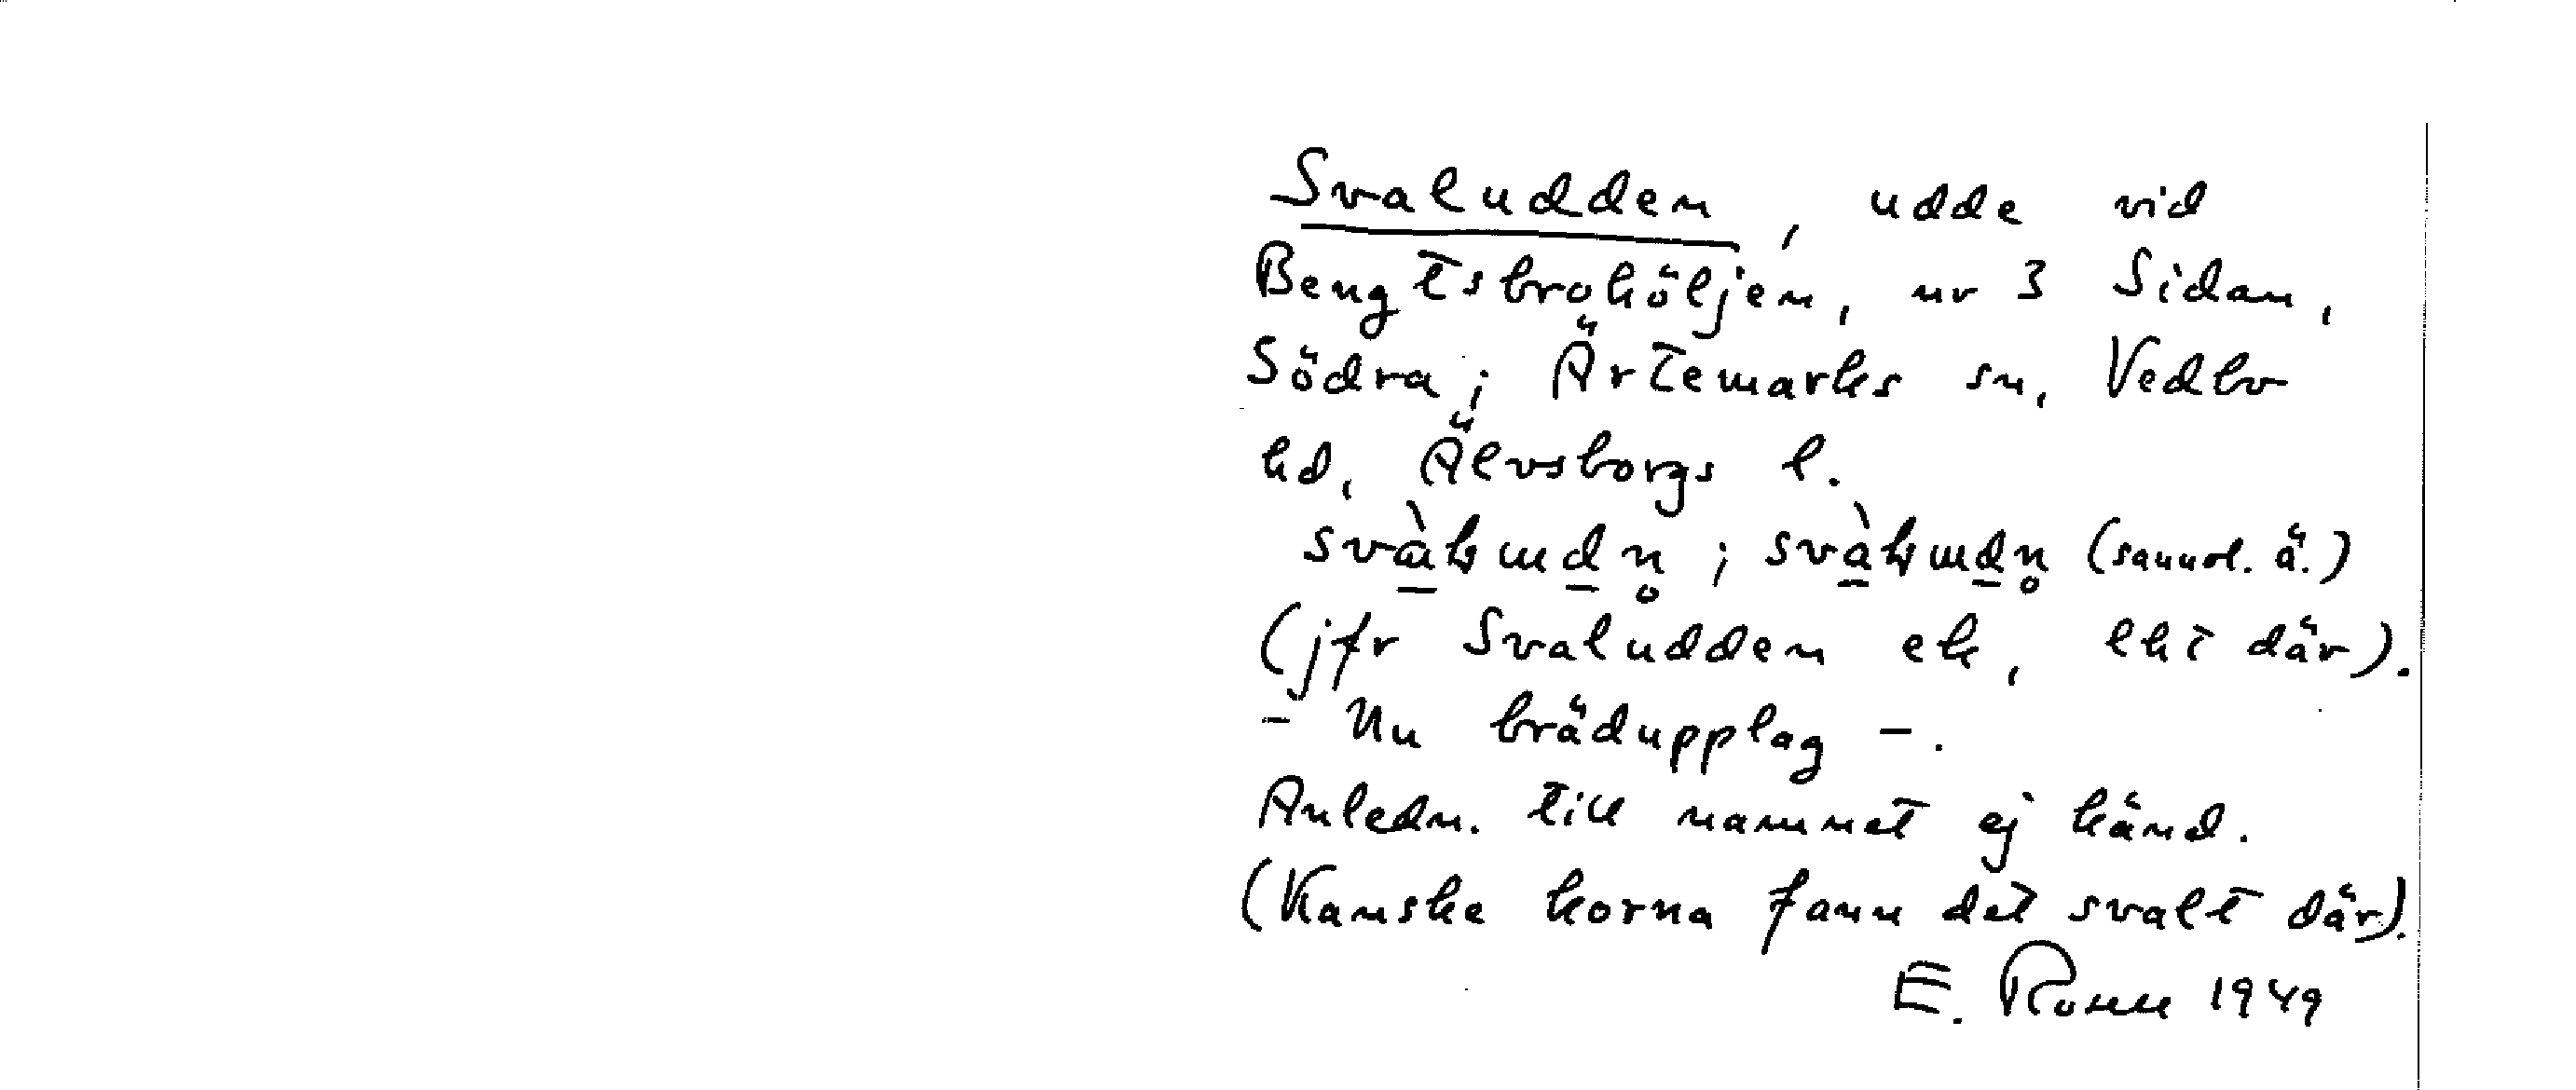 Svaludden, udde vid
Bengtsbrohöljen, nr 3 Sidan,
Södra; Ärtemarks sn, Vedbo
hd, Älvsborgs l.
(sannol. ä.)
(jfr Svaludden ek, lht där).
– Nu brädupplag –.
Anledn. till namnet ej känd.
(Kanske korna fann det svalt där).
E. Rosell 1949